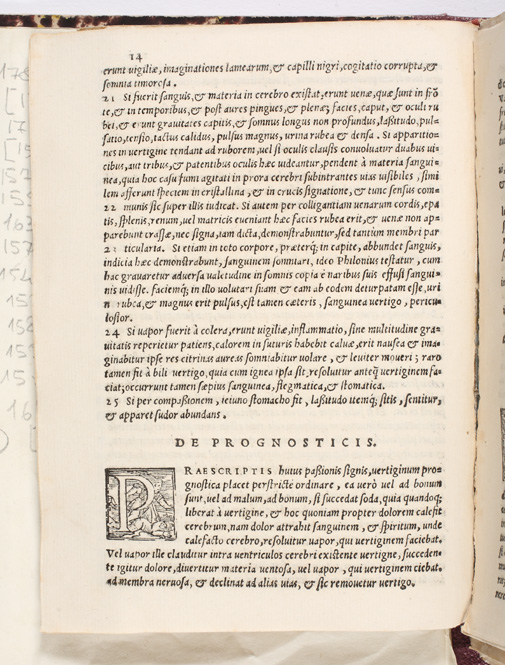 14
erunt uigiliæ, imaginationes lamearum, & capilli nigri, cogitatio corrupta, &
somnia timorosa.
21 Si fuerit sanguis, & materia in cerebro existat, erunt uenæ, quæ sunt in frō
te, & in temporibus, & post aures pingues, & plenæ; facies, caput, & oculi ru
bei, & erunt grauitates capitis, & somnus longus non profundus, lassitudo, pul-
satio, tensio, tactus calidus, pulsus magnus, urina rubea & densa. Si apparitio-
nes in uertigine tendant ad ruborem, uel si oculis clausis conuoluatur duabus ui
cibus, aut tribus, & patentibus oculis hæc uideantur, pendent à materia sangui-
nea, quia hoc casu fumi agitati in prora cerebri subintrantes uias uisibiles, simi
lem afferunt speciem in cristallina, & in crucis signatione, & tunc sensus com-
22 munis sic super illis iudicat. Si autem per colligantiam uenarum cordis, epa
tis, splenis, renum, uel matricis eueniant hæc facies rubea erit, & uenæ non ap-
parebunt crassæ, nec signa, iam dicta, demonstrabuntur, sed tantum membri par
23 ticularia. Si etiam in toto corpore, præterq; in capite, abbundet sanguis,
indicia hæc demonstrabunt, sanguinem somniare, ideo Philonius testatur, cum
hac grauaretur aduersa ualetudine in somnis copia è naribus suis effusi sangui-
nis uidisse. faciemq; in illo uolutari suam & eam ab eodem deturpatam esse, uri
n rubea, & magnus erit pulsus, est tamen cæteris, sanguinea uertigo, pericu-
losior.
24 Si uapor fuerit à colera, erunt uigiliæ, inflammatio, sine multitudine gra-
uitatis reperietur patiens, calorem in futuris habebit caluæ, erit nausea & ima-
ginabitur ipse res citrinas aureas somniabitur uolare, & leuiter moueri; raro
tamen fit à bili uertigo, quia cum ignea ipsa sit, resoluitur anteq̃ uertiginem fa-
ciat; occurrunt tamen sæpius sanguinea, flegmatica, & stomatica.
25 Si per compassionem, ieiuno stomacho fit, lassitudo itemq; sitis, sentitur,
& apparet sudor abundans.
DE PROGNOSTICIS.
PRAESCRIPTIS huius passionis signis, uertiginum pro-
gnostica placet perstricte ordinare, ea verò uel ad bonum
sunt, uel ad malum, ad bonum, si succedat soda, quia quandoq;
liberat à uertigine, & hoc quoniam propter dolorem calefit
cerebrum, nam dolor attrahit sanguinem, & spiritum, unde
calefacto cerebro, resoluitur uapor, qui uertiginem faciebat.
Vel uapor ille clauditur intra uentriculos cerebri existente uertigne, succeden-
te igitur dolore, diuertitur materia uentosa, uel uapor, qui uertiginem ciebat,
ad membra neruosa, & declinat ad alias uias, & sic remouetur uertigo.